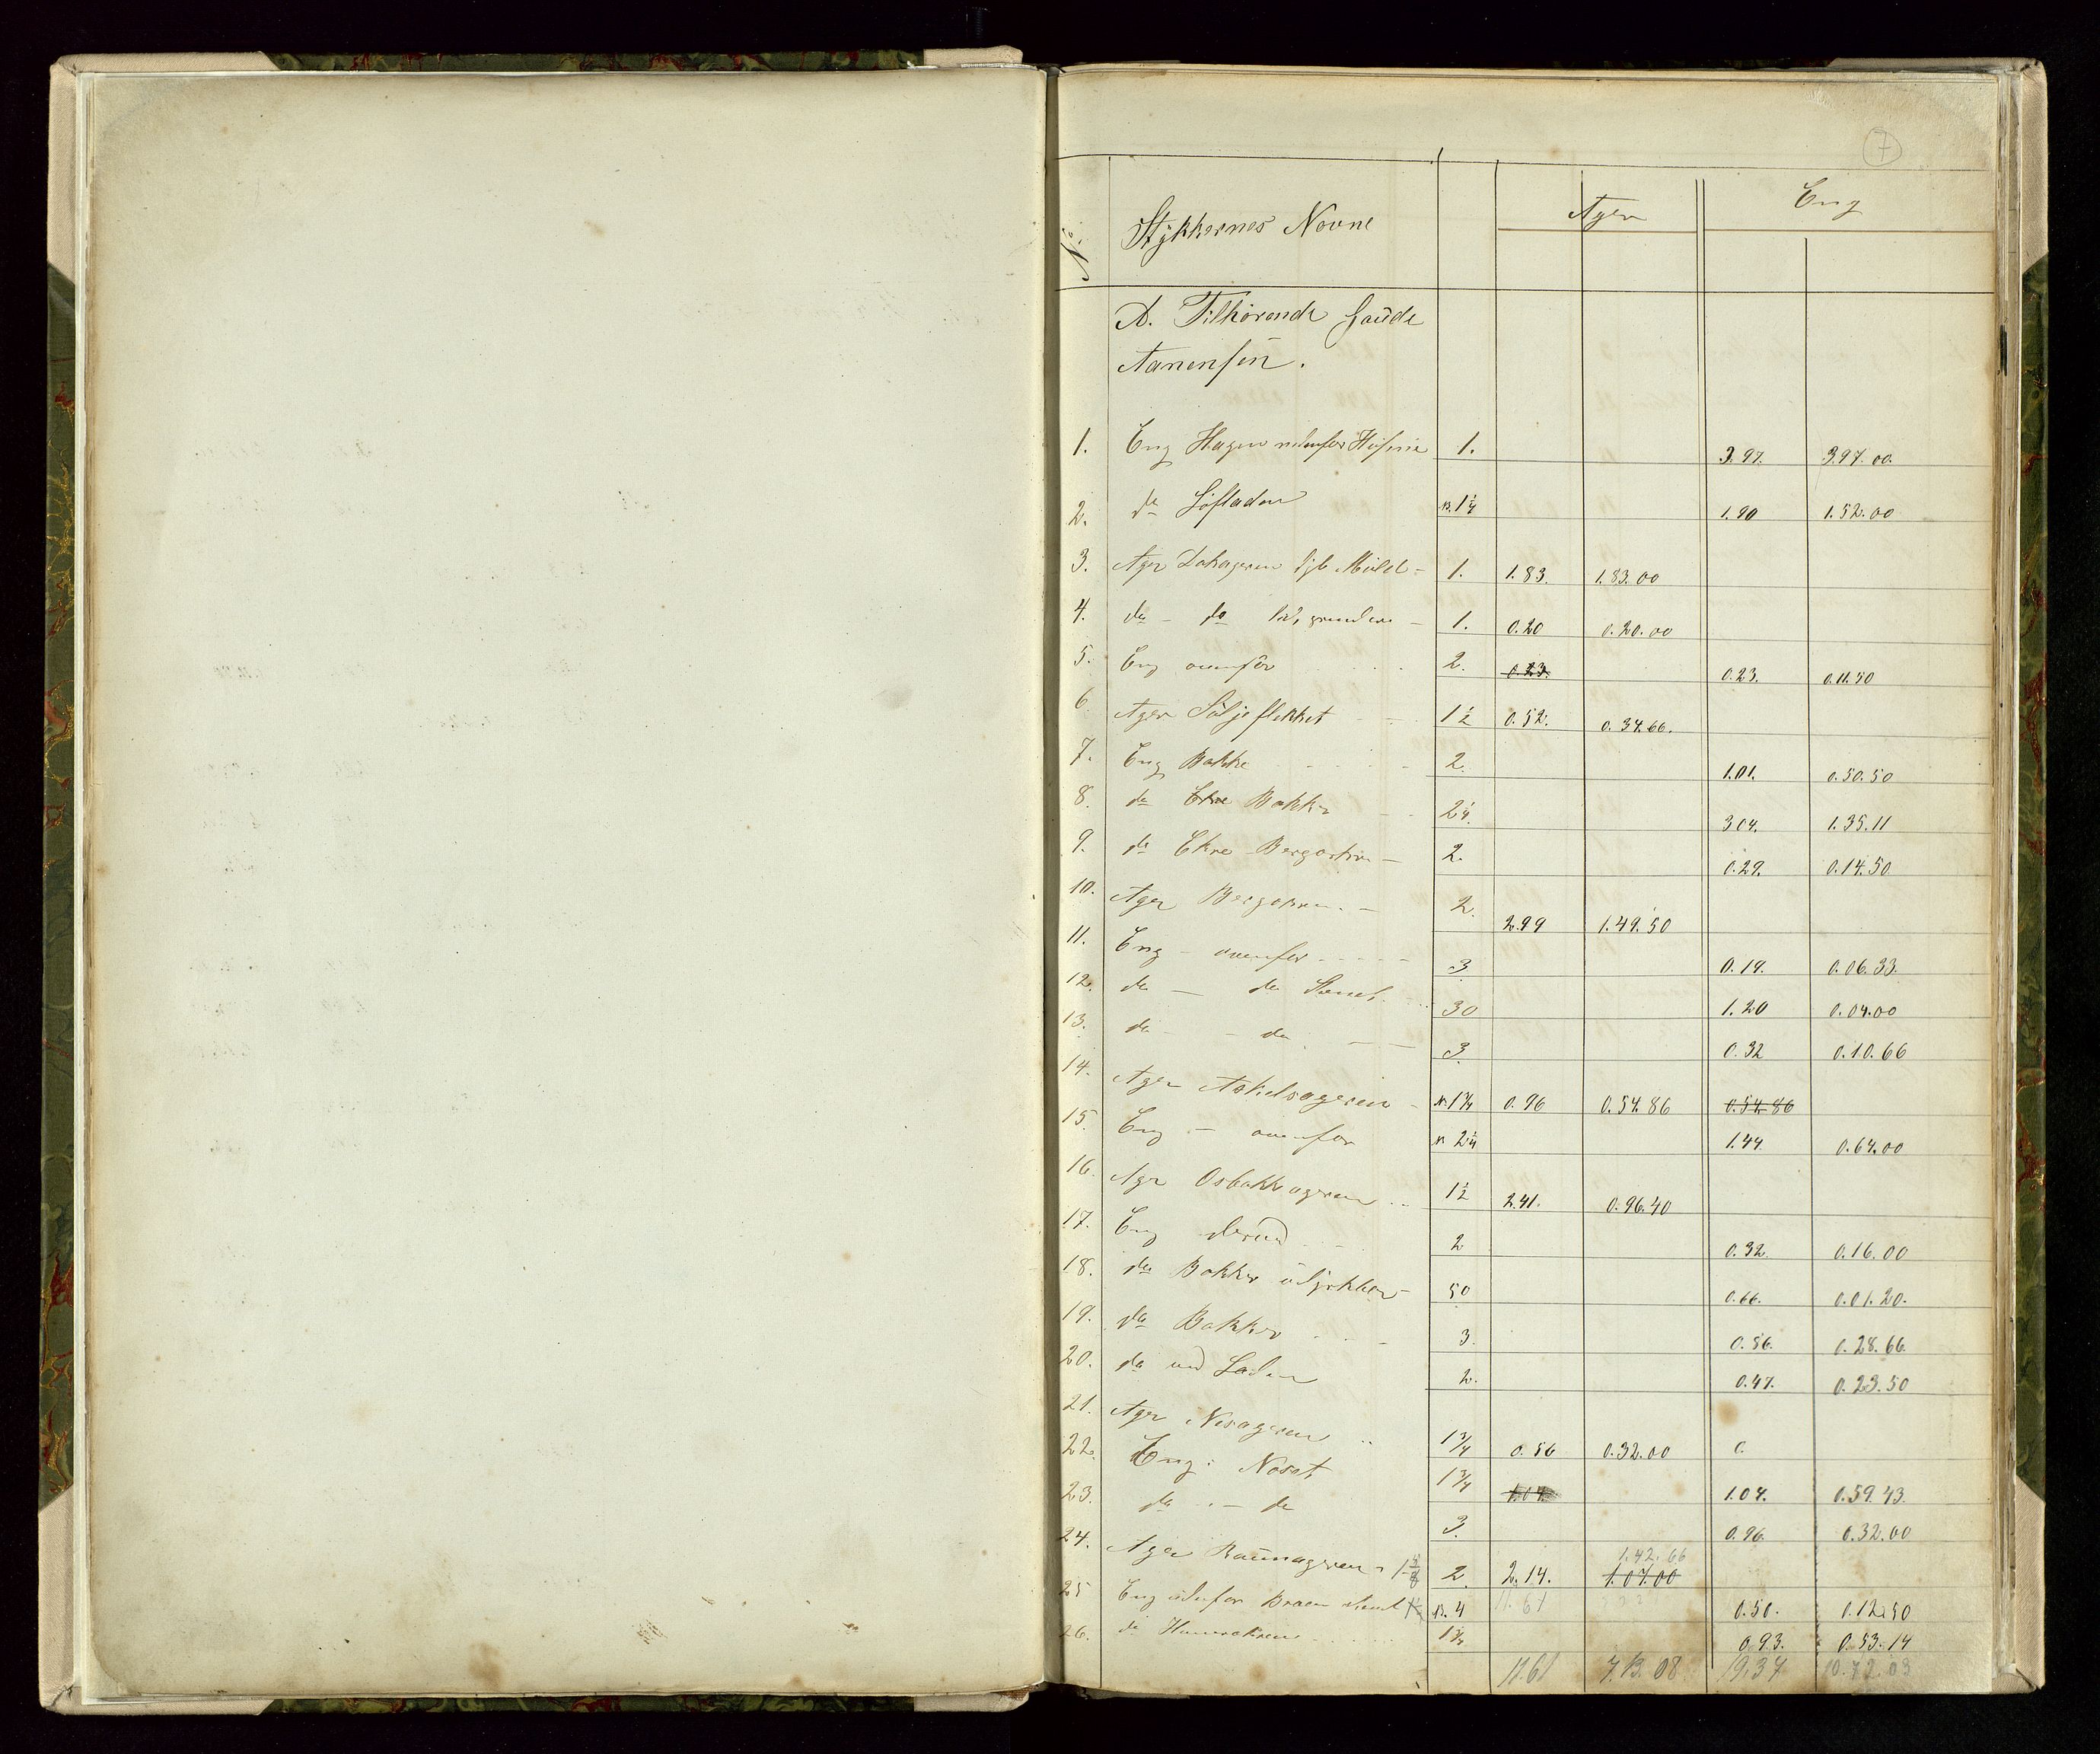 7
No Stykkernes Navne Ager Eng
A. Tilhørende Gaude
Aanensen.
1. Eng Hagen nedenfor Husene 1. 3.97. 3.97.00.
2. do Løfladen N. 1 1/4 1.90 1.52.00
3. Ager Ladageren Muld - 1. 1.83. 1.83.00
4. do - do grundere - 1. 0.20 0.20.00
5. Eng ovenfor 2. 0.23. 0.23. 0.11.50
6. Ager Siljeflekket 1 1/2 0.52. 0.34.66.
7. Eng Bakke 2. 1.01. 0.50.50
8. do Ekre Bakker 2 1/4. 3.04. 1.35.11
9. do Ekre Bergaker - 2. 0.29. 0.14.50
10. Ager Bergakren - 2. 2.99 1.49.50
11. Eng - ovenfor 3 0.19. 0.06.33.
12. do - do 30 1.20 0.04.00
13. do - do 3. 0.32 0.10.66
14. Ager Askelsageren - N. 1 3/4 0.96 0.54.86 0.54.86
15. Eng - ovenfor N 2 1/4 1.44 0.64.00
16. Ager Osbakkageren 1 1/2 2.41. 0.96.40
17. Eng derved 2 0.32. 0.16.00
18. do Bakker udyrkbar - 50 0.66. 0.01.20.
19. do Bakker 3. 0.56. 0.28.66.
20. do ved Laden 2. 0.47. 0.23.50
21. Ager Nesageren 1 3/4 0.56 0.32.00 0.
22. Eng: Neset 1 3/4 1.04. 1.04. 0.59.43.
23. do - do 3. 0.96. 0.32.00
1.42.66
24. Ager Raunageren 2. 2.14. 1.07.00
25 Eng udenfor N. 4 11.61 0.50. 0.12.50
26. do 1 3/4 0.93. 0.53.14
11.61 7.13.08 19.37 10.72.03